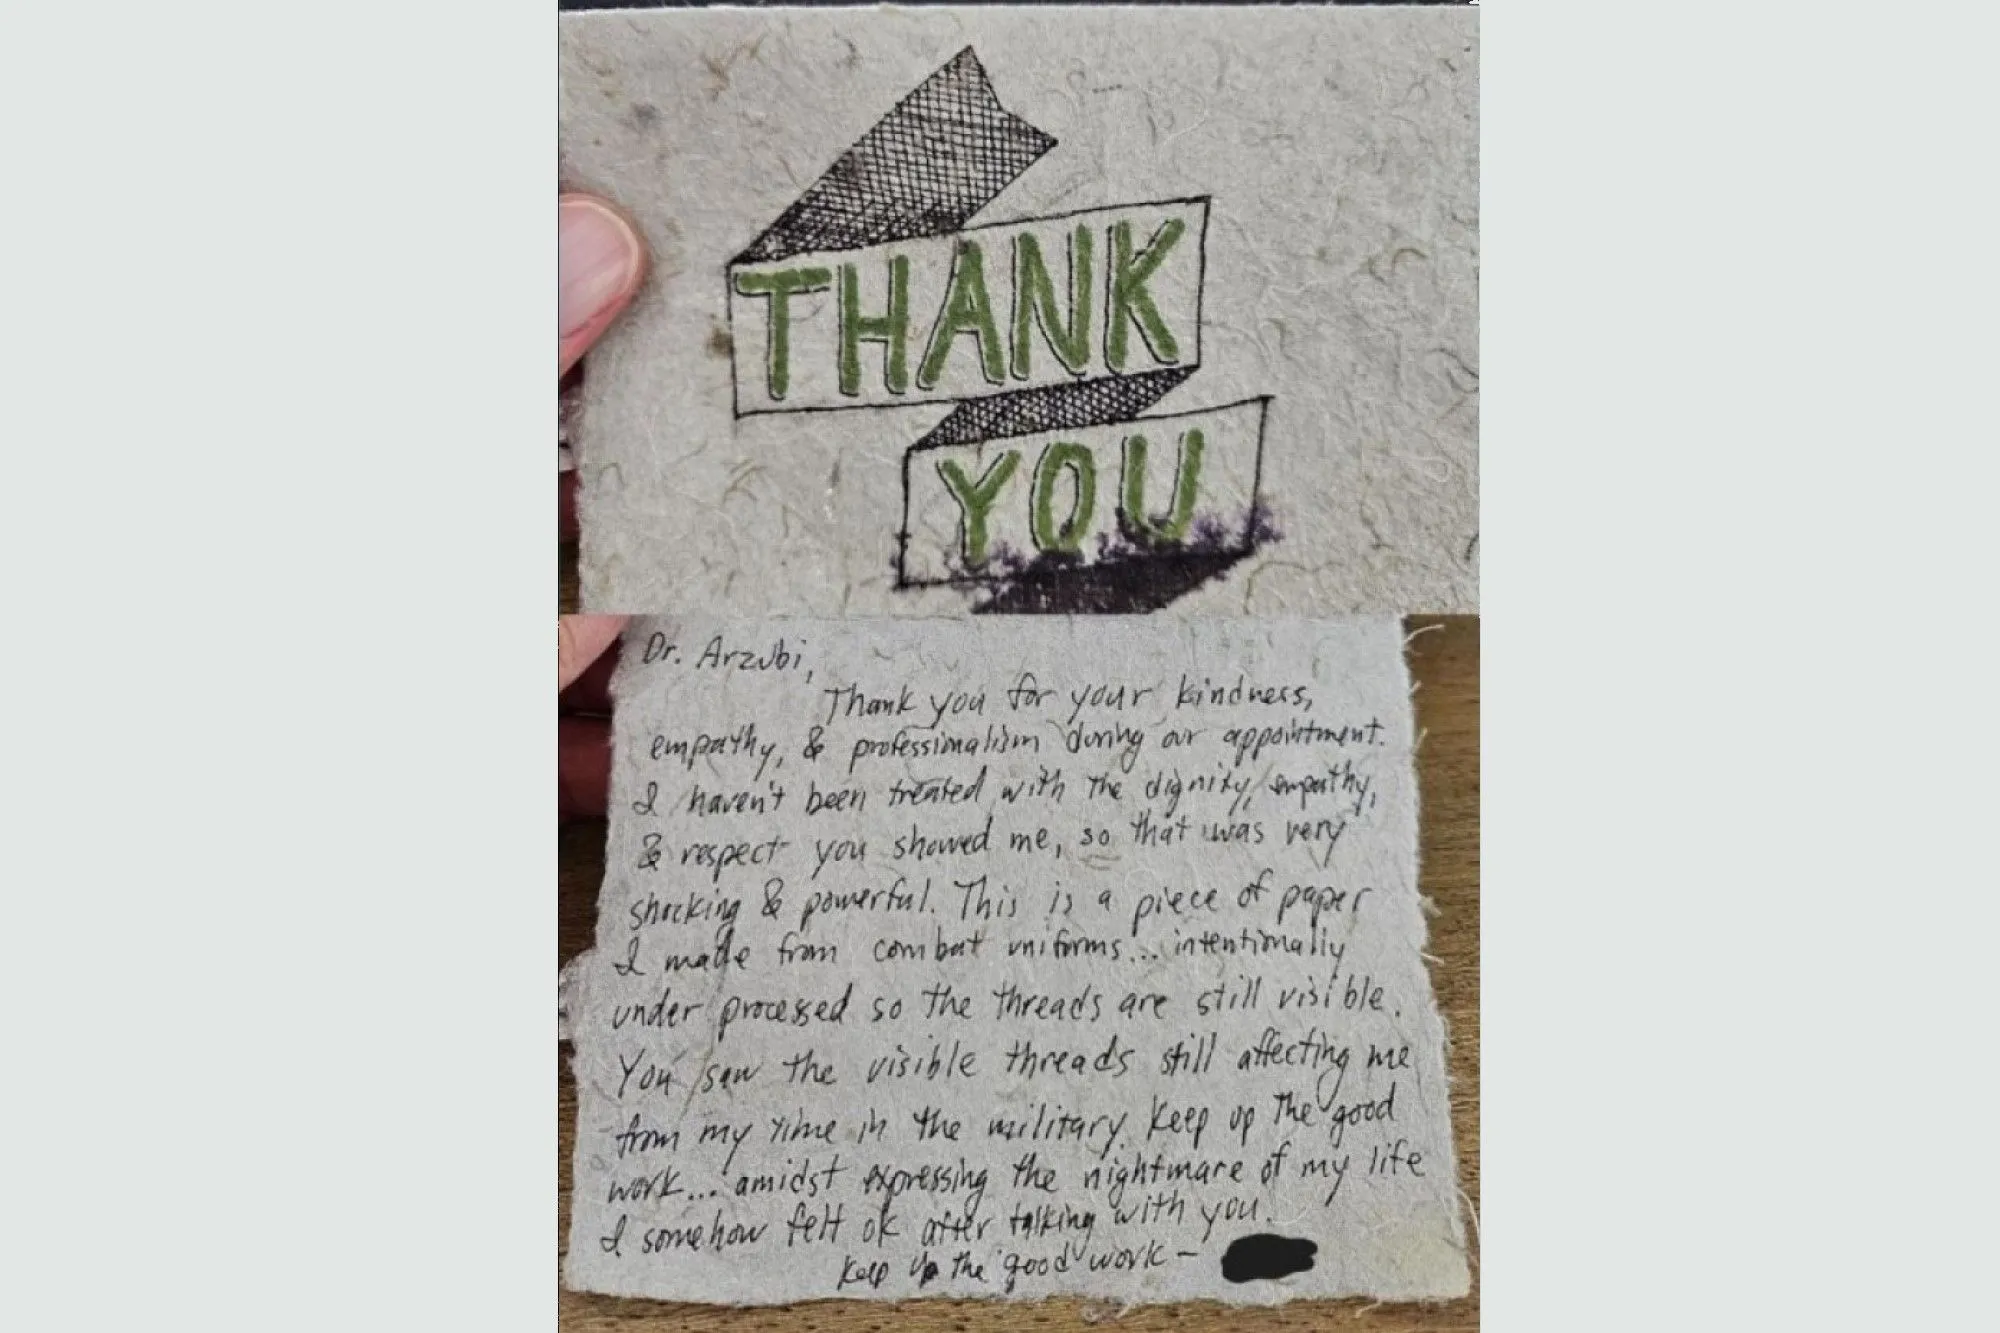 THANK
YOU
Dr. Arzubi,
Thank you for your kindness,
empathy, & professionalism during our appointment.
I haven't been treated with the dignity, empathy,
& respect you showed me, so that was very
shocking & powerful. This is a piece of paper
I made from combat uniforms... intentionally
under processed so the threads are still visible.
You saw the visible threads still affecting me
from my time in the military. Keep up the good
work... amidst expressing the nightmare of my life
I somehow felt ok after talking with you.
Keep up the good work –